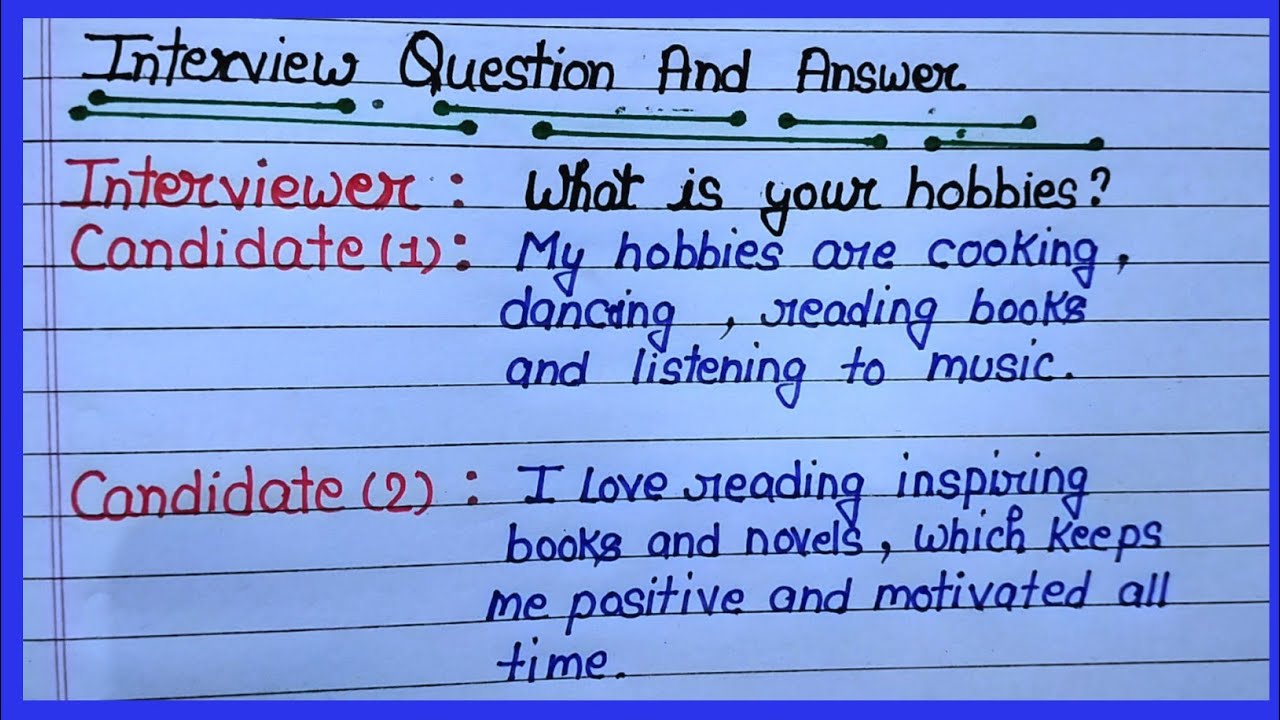 Interview Question And Answer
Interviewer : What is your hobbies?
Candidate (1) : My hobbies are cooking,
dancing , reading books
and listening to music.
Candidate (2) : I Love reading inspiring
books and novels, which keeps
me positive and motivated all
time.